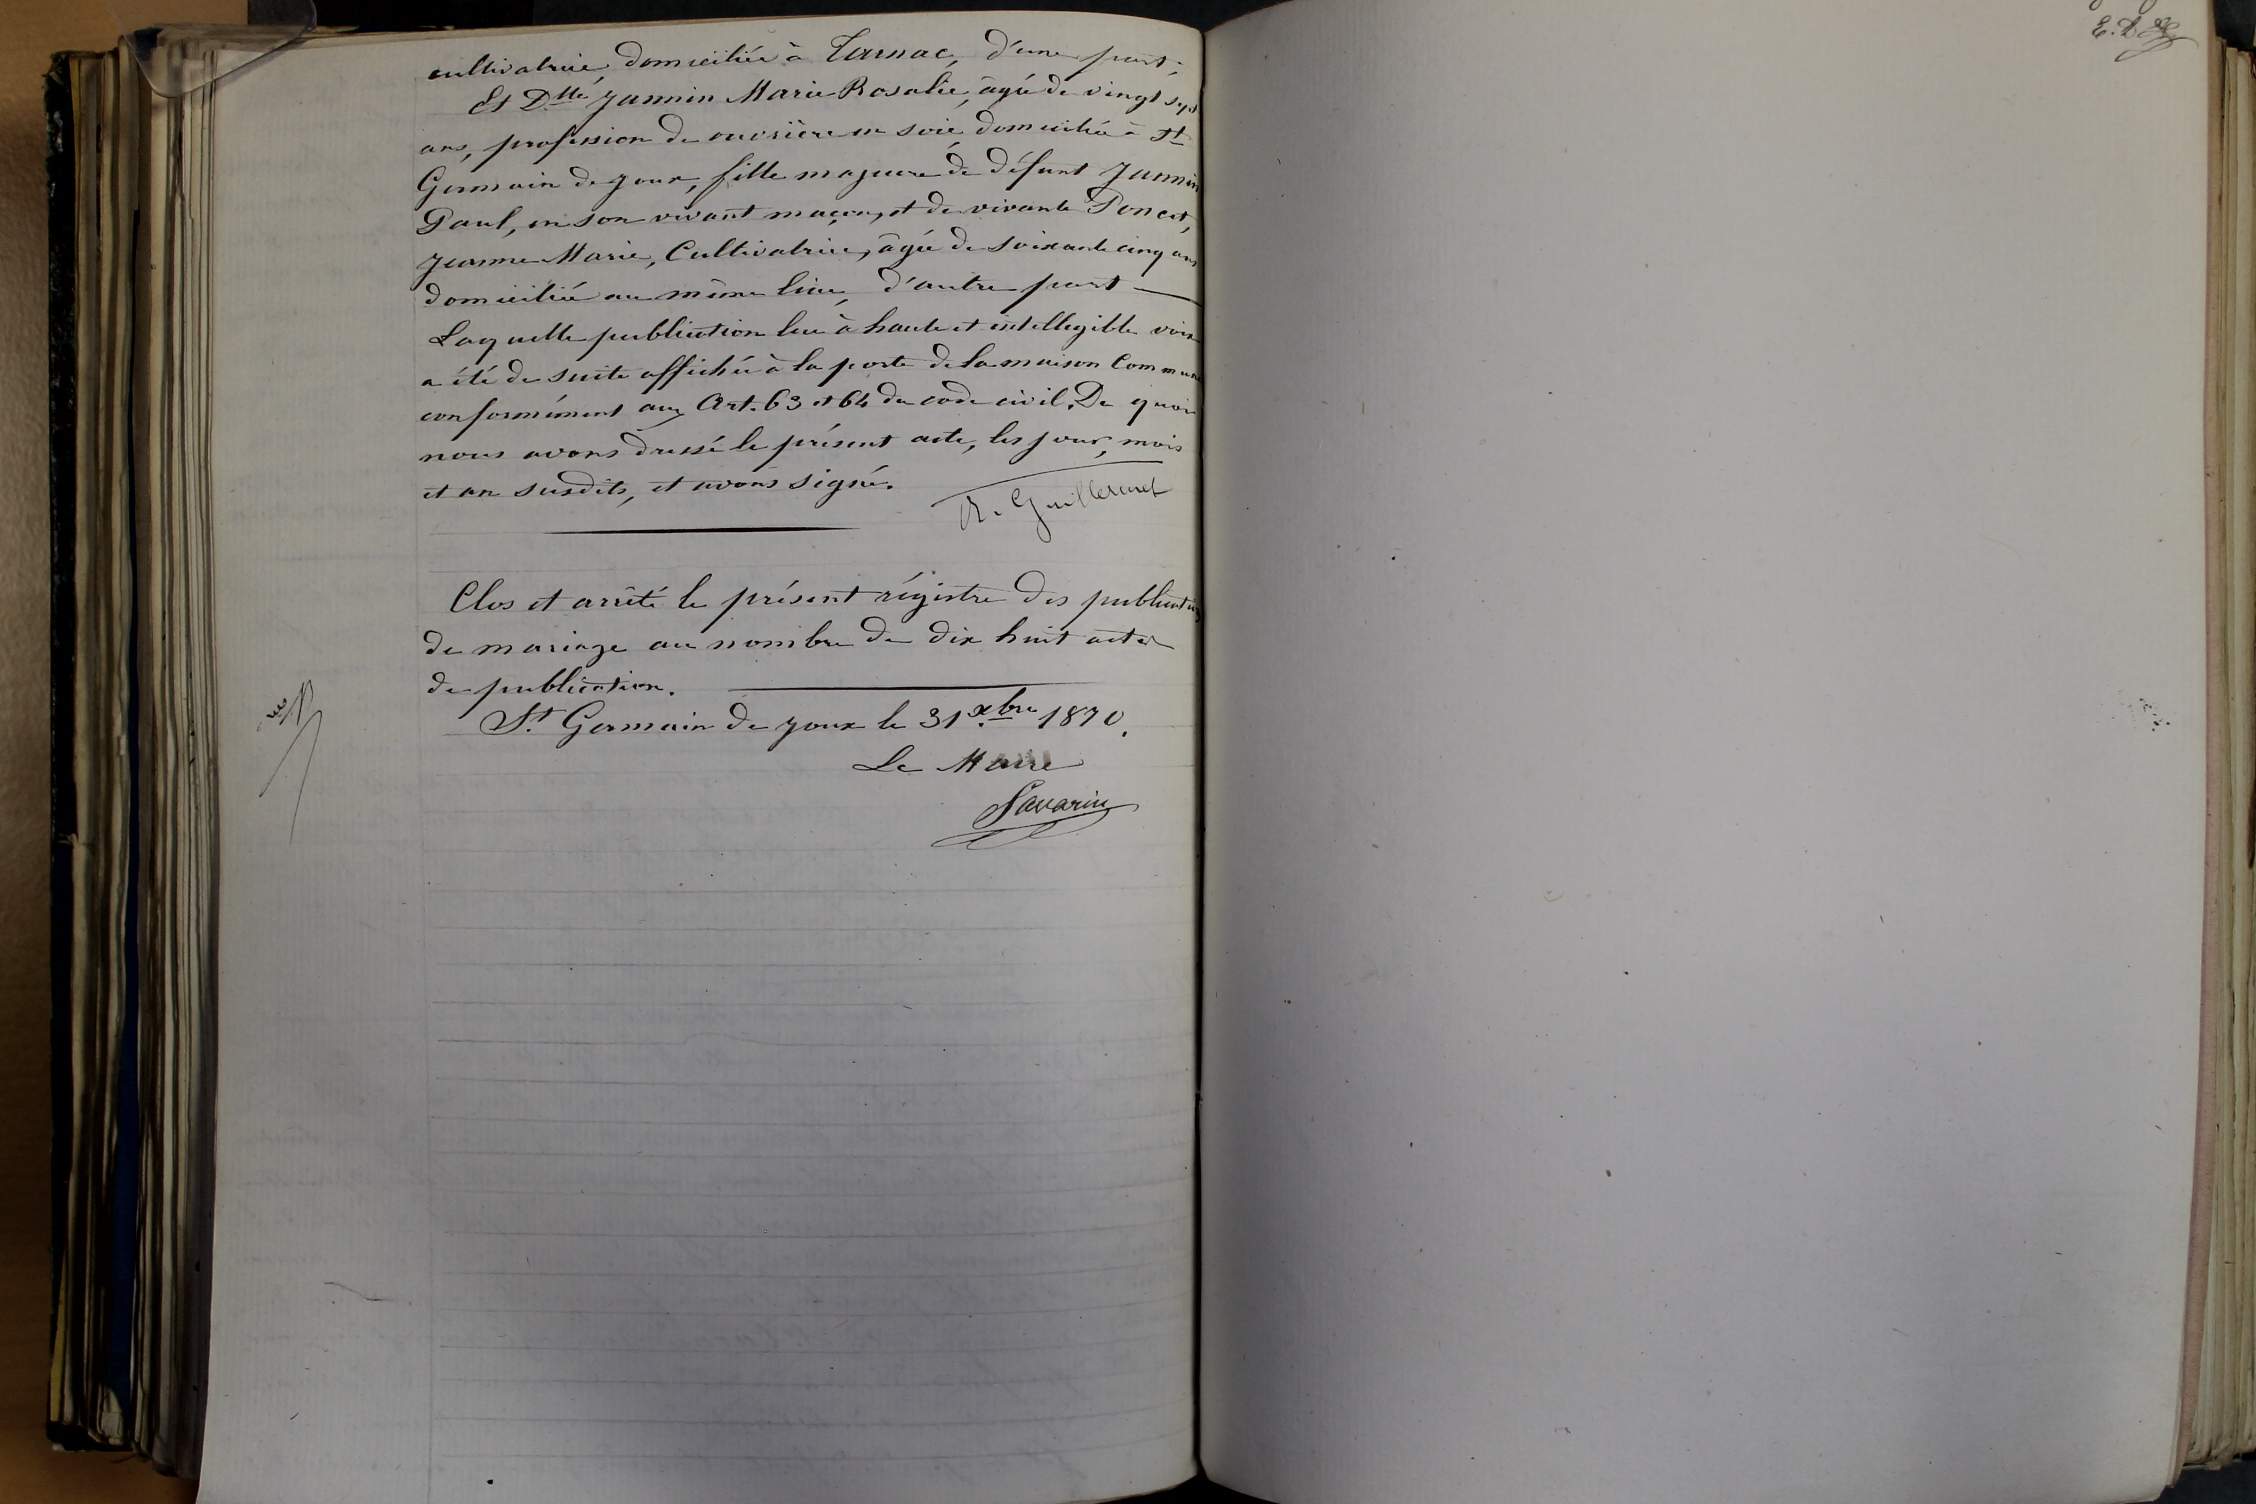 cultivatrice, domiciliée à Tarnac, d'une part;
Et D.lle Jannin Marie Rosalie, âgée de vingt sept
ans, profession de ouvrière en soie, domiciliée à St
Germain de Joux, fille majeure de défunt Jannin
Paul, en son vivant maçon, et de vivante Poncet,
Jeanne Marie, Cultivatrice, âgée de soixante cinq ans
domiciliée au même lieu, d'autre part —
Laquelle publication lue à haute et intellegible voix
a été de suite affichée à la porte de la maison Commune
conformément aux Art. 63 et 64 du code civil. De quoi
nous avons dressé le présent acte, les jour, mois
et an susdits, et avons signé.
Clos et arrêté le présent régistre des publications
de mariage au nombre de dix huit actes
de publication.
St. Germain de Joux le 31 xbre 1870.
Le Maire
Savarin